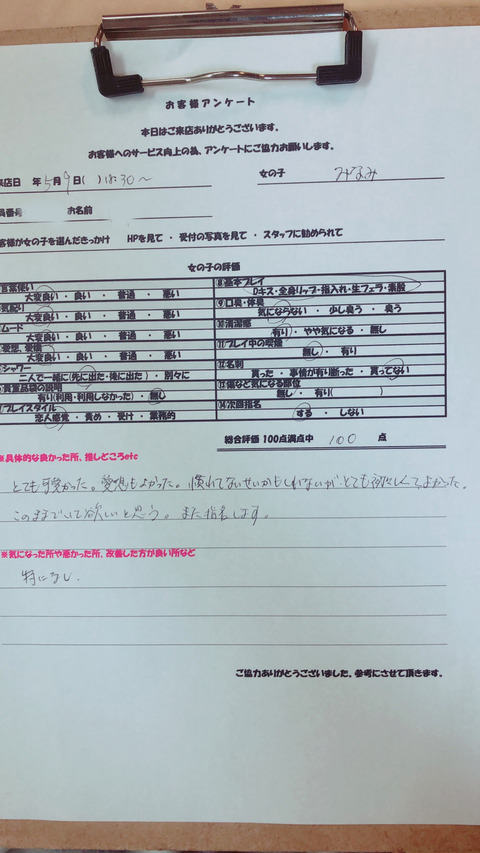 お客様アンケート
本日はご来店ありがとうございます。
お客様へのサービス向上の為、アンケートにご協力お願いします。
来店日 年5月9日( ) 18:30〜 女の子 みなみ
員番号 お名前
客様が女の子を選んだきっかけ HPを見て・受付の写真を見て・スタッフに勧められて
女の子の評価
言葉使い
大変良い・良い・普通・悪い
気配り
大変良い・良い・普通・悪い
ムード
大変良い・良い・普通・悪い
表情、愛嬌
大変良い・良い・普通・悪い
シャワー
二人で一緒に(先に出た・後に出た)・別々に
貴重品袋の説明
有り(利用・利用しなかった)・無し
プレイスタイル
恋人感覚・責め・受け・業務的
⑧基本プレイ
Dキス・全身リップ・指入れ・生フェラ・素股
⑨口臭・体臭
気にならない・少し臭う・臭う
⑩清潔感
有り・やや気になる・無し
⑪プレイ中の喫煙
無し・有り
⑫名刺
貰った・事情が有り断った・貰ってない
⑬傷など気になる部位
無し・有り( )
⑭次回指名
する・しない
総合評価 100点満点中 100 点
※具体的な良かった所、推しどころetc
とても可愛かった。愛想もよかった。慣れてないせいかもしれないが、とても初々しくてよかった。
このままでいて欲しいと思う。また指名します。
※気になった所や悪かった所、改善した方が良い所など
特になし.
ご協力ありがとうございました。参考にさせて頂きます。